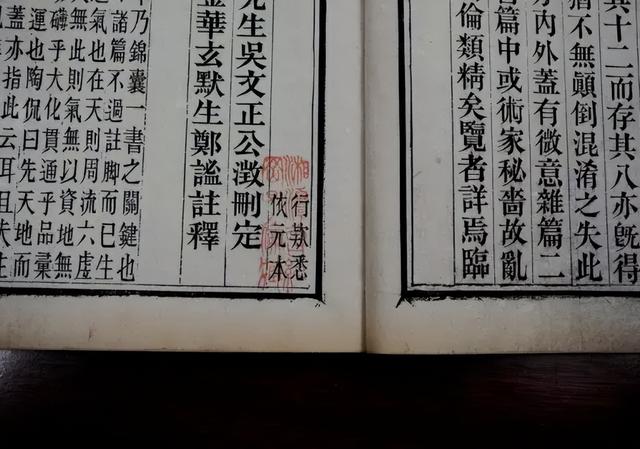 其十二而存其八亦旣得
猶不無顛倒混淆之失此
內外蓋有微意雜篇二
篇中或術家秘嗇故亂
倫類精矣覽者詳焉臨
行欵悉
依元本
先生吳文正公澂刪定
金華玄默生鄭謐註釋
乃錦囊一書之關鍵也
諸篇不過註脚而已生
氣也在天則周流六虛
無此則氣無以資地無
礴乎大化貫通乎品彙
運也陶侃曰先天地而
蓋亦指此云耳且夫生